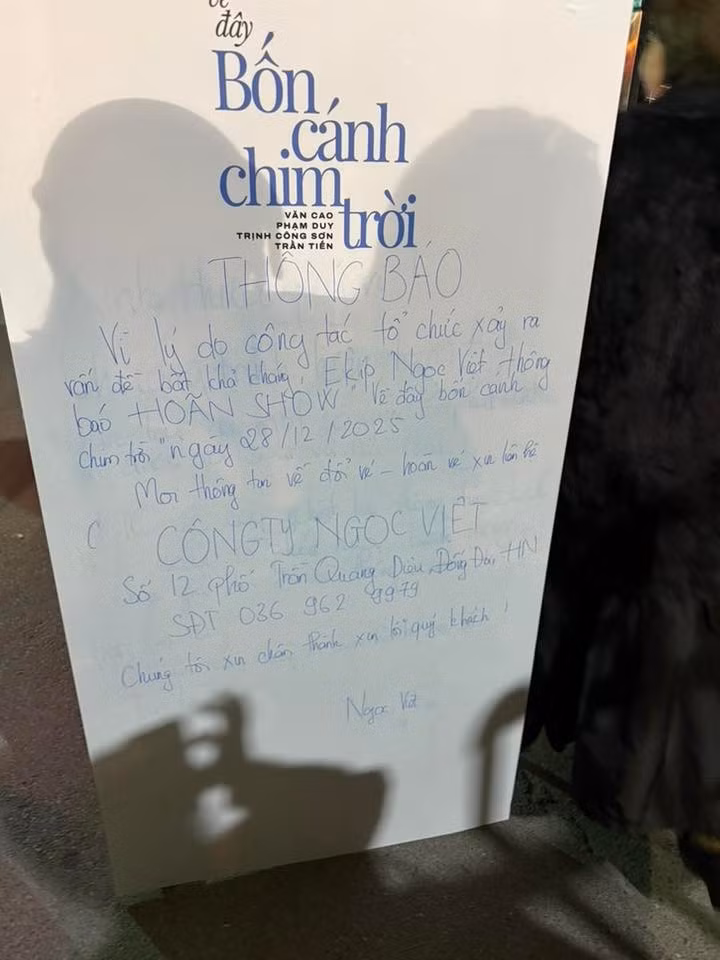 về
đây
Bốn
cánh
chim
trời
VĂN CAO
PHẠM DUY
TRỊNH CÔNG SƠN
TRẦN TIẾN
THÔNG BÁO
Vì lý do công tác tổ chức xảy ra
vấn đề bất khả kháng, Ekip Ngọc Việt thông
báo HOÃN SHOW "Về đây bốn cánh
chim trời" ngày 28/12/2025
Mọi thông tin về đổi vé - hoàn vé xin liên hệ
CÔNG TY NGỌC VIỆT
Số 12 phố Trần Quang Diệu, Đống Đa, HN
SĐT 036 962 9979
Chúng tôi xin chân thành xin lỗi quý khách!
Ngọc Việt